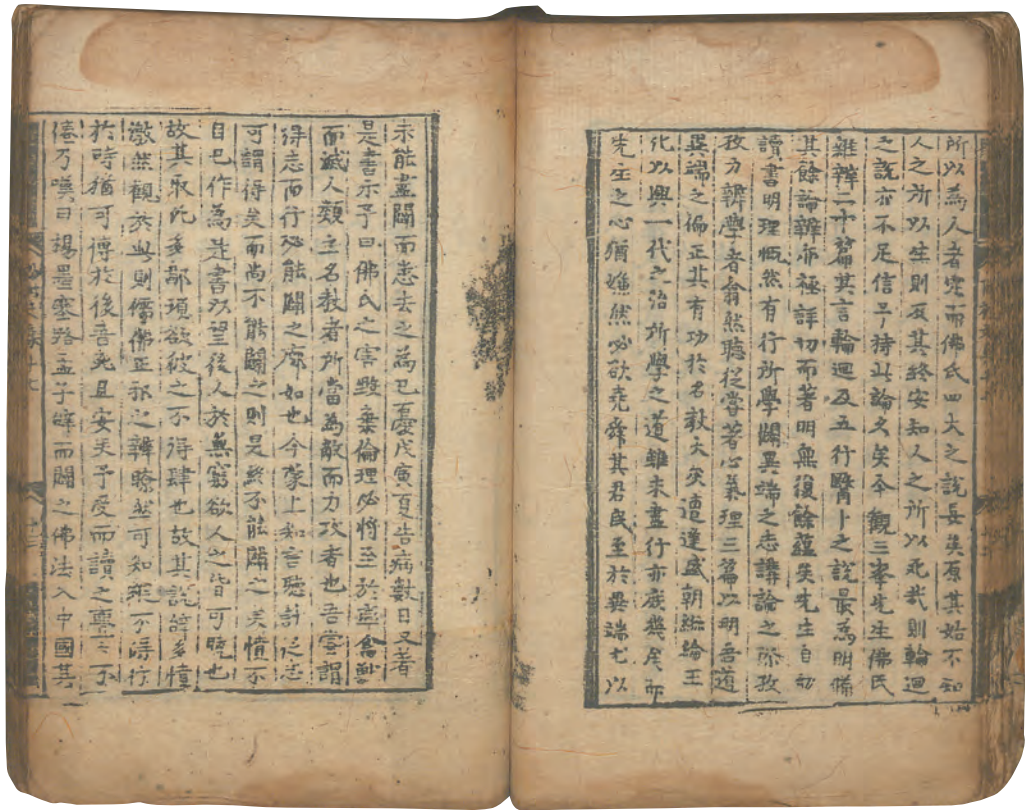 所以為人者寔而佛氏四大之說妄矣原其始不知
人之所以生則反其終安知人之所以死哉則輪迴
之說亦不足信予持此論久矣今觀三峯先生佛氏
雜辨二十篇其言輪迴及五行醫卜之說最為明備
其餘論辨亦極詳切而著明無復餘蘊矣先生自幼
讀書明理慨然有行所學闢異端之志講論之際孜
孜力辨學者翕然聽從嘗著心氣理三篇以明吾道
異端之偏正其有功於名敎大矣遭逢盛朝經綸王
化以興一代之治所學之道雖未盡行亦庶幾矣而
先生之心猶慊然必欲堯舜其君民至於異端尤以
未能盡闢而悉去之為己憂戊寅夏告病數日又著
是書示予曰佛氏之害毀棄倫理必將至於率禽獸
而滅人類主名敎者所當為敵而力攻者也吾嘗謂
得志而行必能闢之廓如也今蒙上知言聽計從志
可謂得矣而尚不能闢之則是終不能闢之矣憤不
自已作為是書以望後人於無窮欲人之皆可曉也
故其取比多鄙瑣欲彼之不得肆也故其設辭多憤
激然觀於此則儒佛正邪之辨瞭然可知縱不得行
於時猶可傳於後吾死且安矣予受而讀之亹亹不
倦乃嘆曰楊墨塞路孟子辭而闢之佛法入中國其